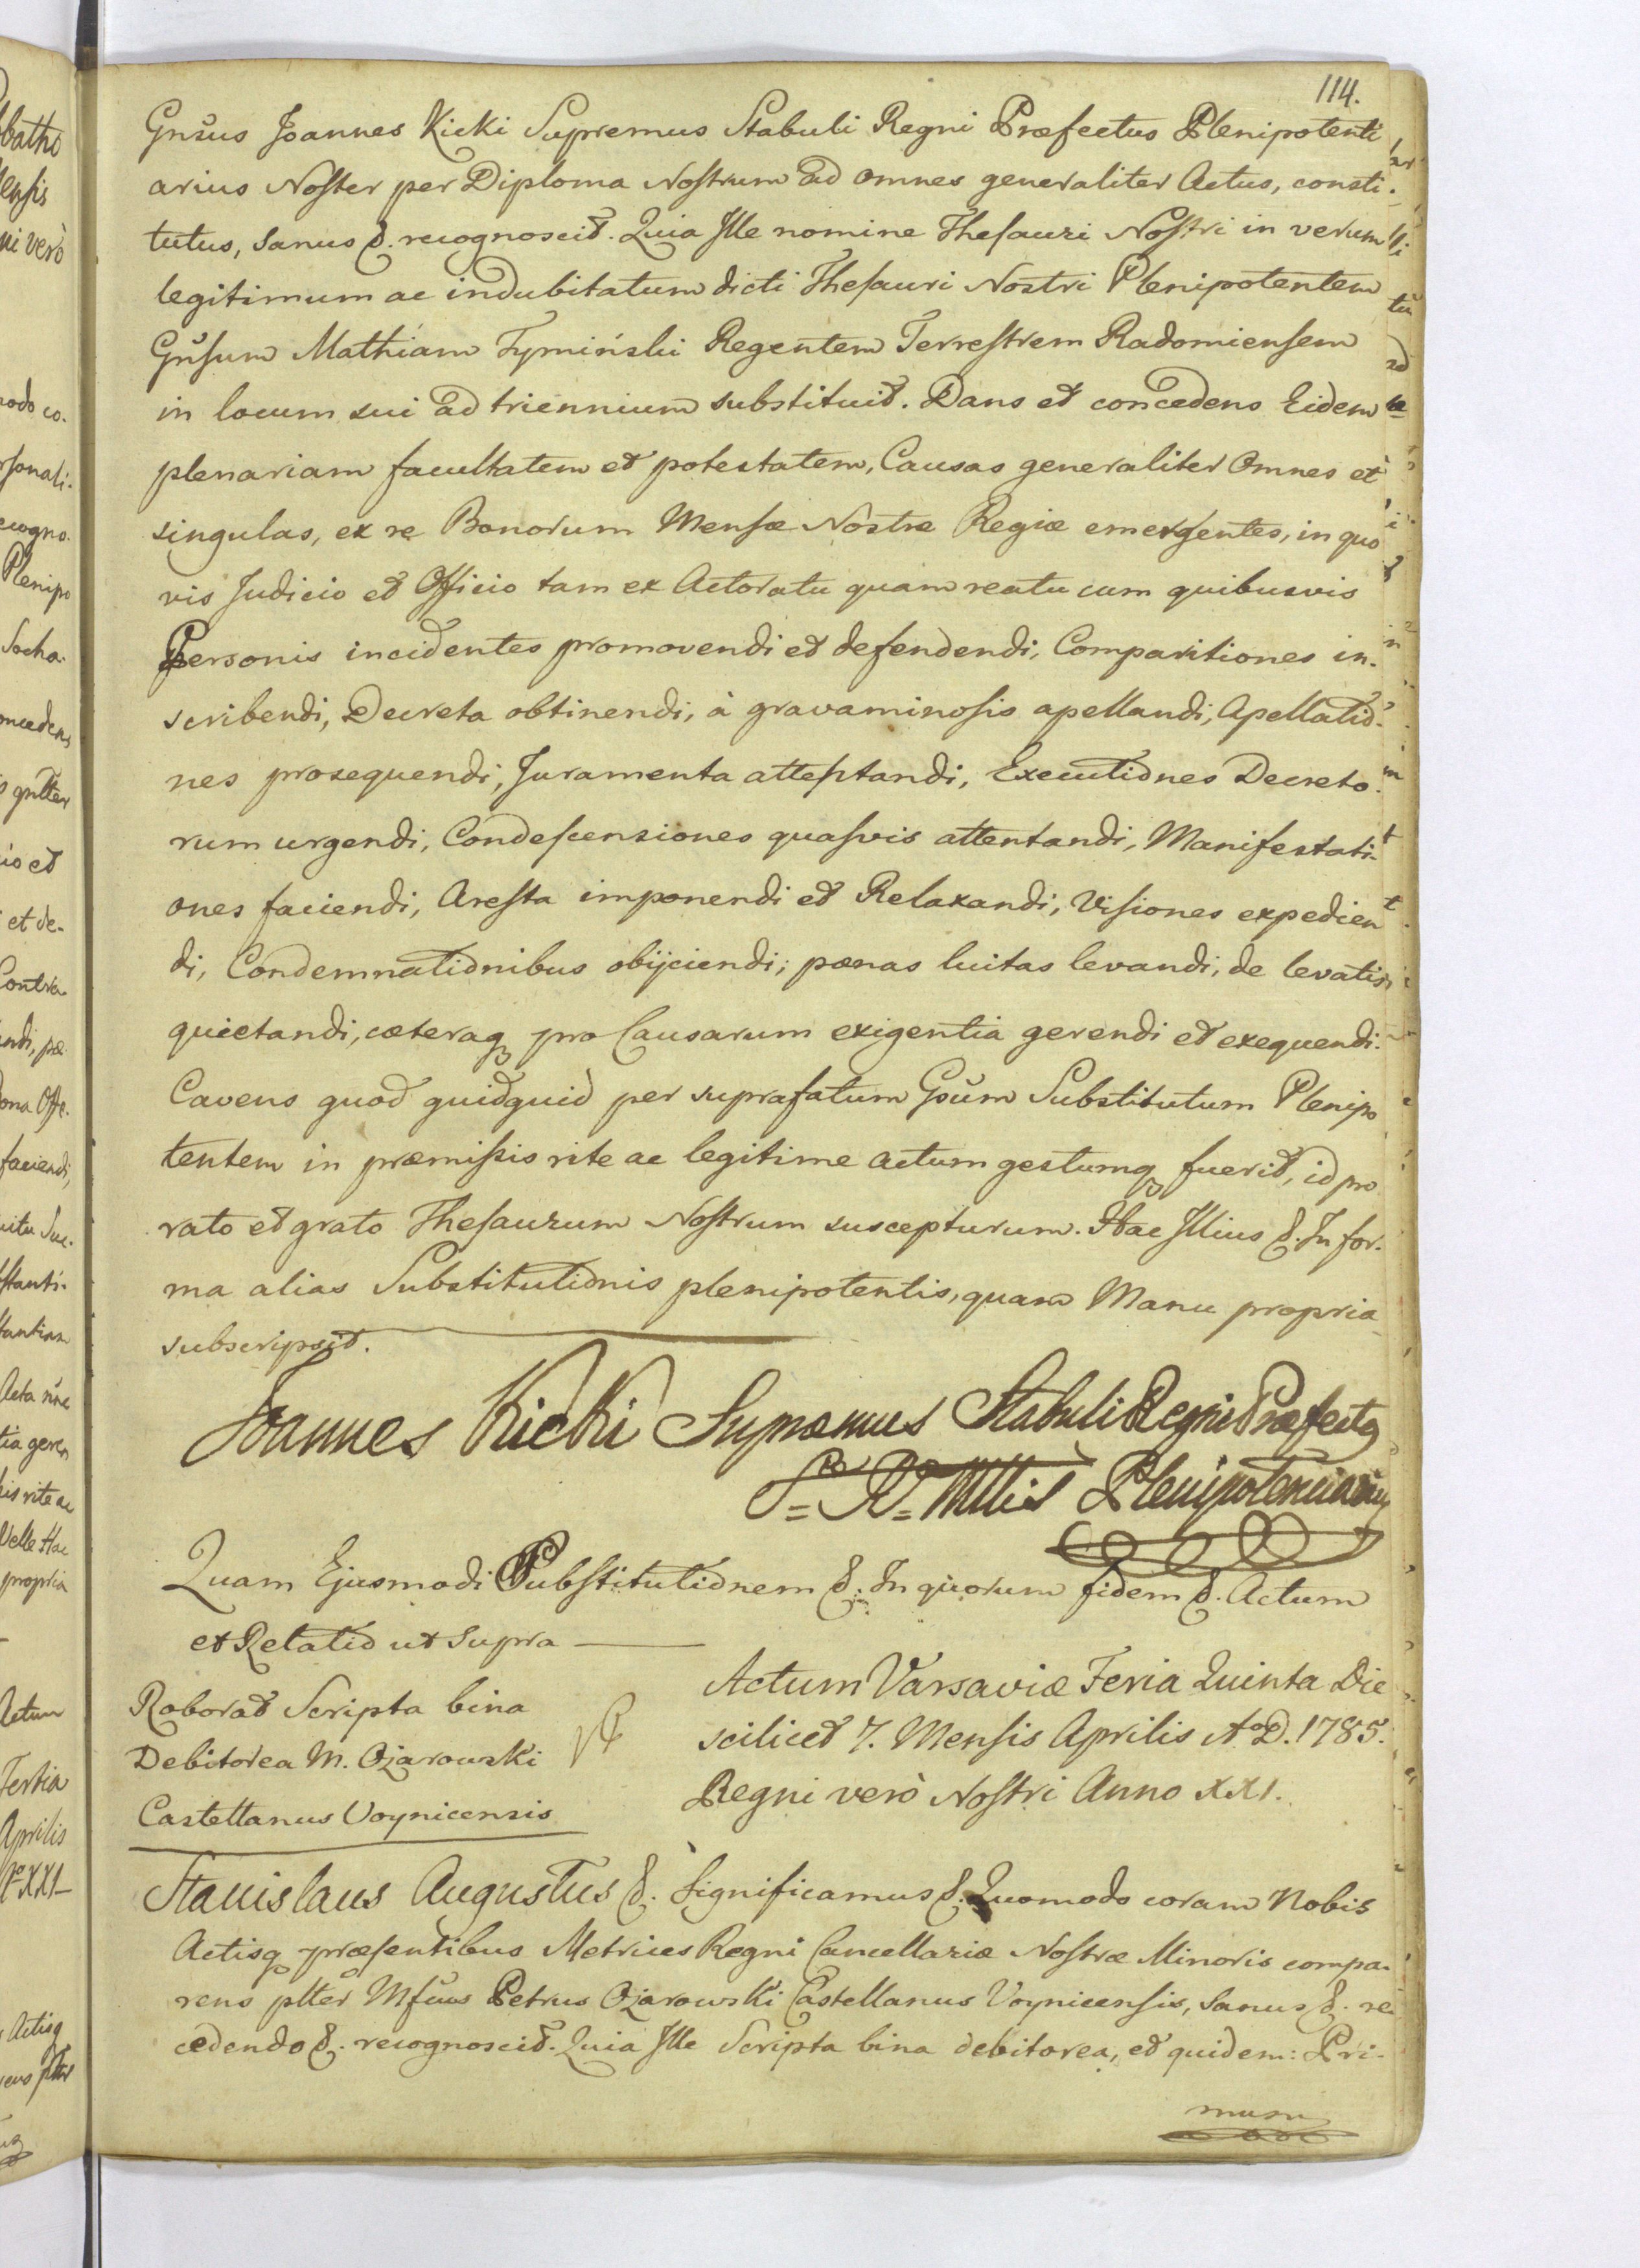 114.
Gnsus Joannes Kicki Supremus Stabuli Regni Præfectus Plenipotenti
arius Noster per Diploma Nostrum ad omnes generaliter Actus, consti.
tutus, sanus &. recognoscit. Quia Ille nomine Thesauri Nostri in verum
legitimum ac indubitatum dicti Thesauri Nostri Plenipotentem
Gnsum Mathiam Tymiński Regentem Terrestrem Radomiensem
in locum sui ad triennium substituit. Dans et concedens Eidem
plenariam facultatem et potestatem, Causas generaliter Omnes et
singulas, ex re Bonorum Mensæ Nostræ Regiæ emergentes, in quo
vis Judicio et Officio tam ex Actoratu quam reatu cum quibusvis
Personis incidentes promovendi et defendendi, Comparitiones in.
scribendi, Decreta obtinendi, à gravaminosis apellandi, Apellatio.
nes prosequendi, Juramenta attestandi, Executiones Decreto.
rum urgendi, Condescensiones quasvis attentandi, Manifestati.
ones faciendi, Aresta imponendi et Relaxandi, Visiones expedien
di, Condemnationibus obijciendi; pœnas luitas levandi, de levatis
quietandi, cæteraq pro Causarum exigentia gerendi et exequendi.
Cavens quod quidquid per suprafatum Gsum Substitutum Plenipo
tentem in præmissis rite ac legitime actum gestumq fuerit, id pro
rato et grato Thesaurum Nostrum suscepturum. Hac Illius &. In for.
ma alias Substitutionis plenipotentis, quam Manu propria
subscripsit.
Joannes Kicki Supremus Stabuli Regni Præfectq
S= R= Mttis Plenipotenciarius
Quam Ejusmodi Substitutionem &. In quorum fidem &. Actum
et Relatio ut Supra
Roborat Scripta bina
Debitorea M. Ożarowski
Castellanus Voynicensis
Actum Varsaviæ Feria Quinta Die
scilicet 7. Mensis Aprilis Aº D. 1785.
Regni verò Nostri Anno XXI.
Stanislaus Augustus &. Significamus &. Quomodo coram Nobis
Actisq præsentibus Metrices Regni Cancellariæ Nostræ Minoris compa.
rens plter Mfcus Petrus Ożarowski Castellanus Voynicensis, Sanus &. re
cedendo &. recognoscit. Quia Ille Scripta bina debitorea, et quidem: Pri-
mum